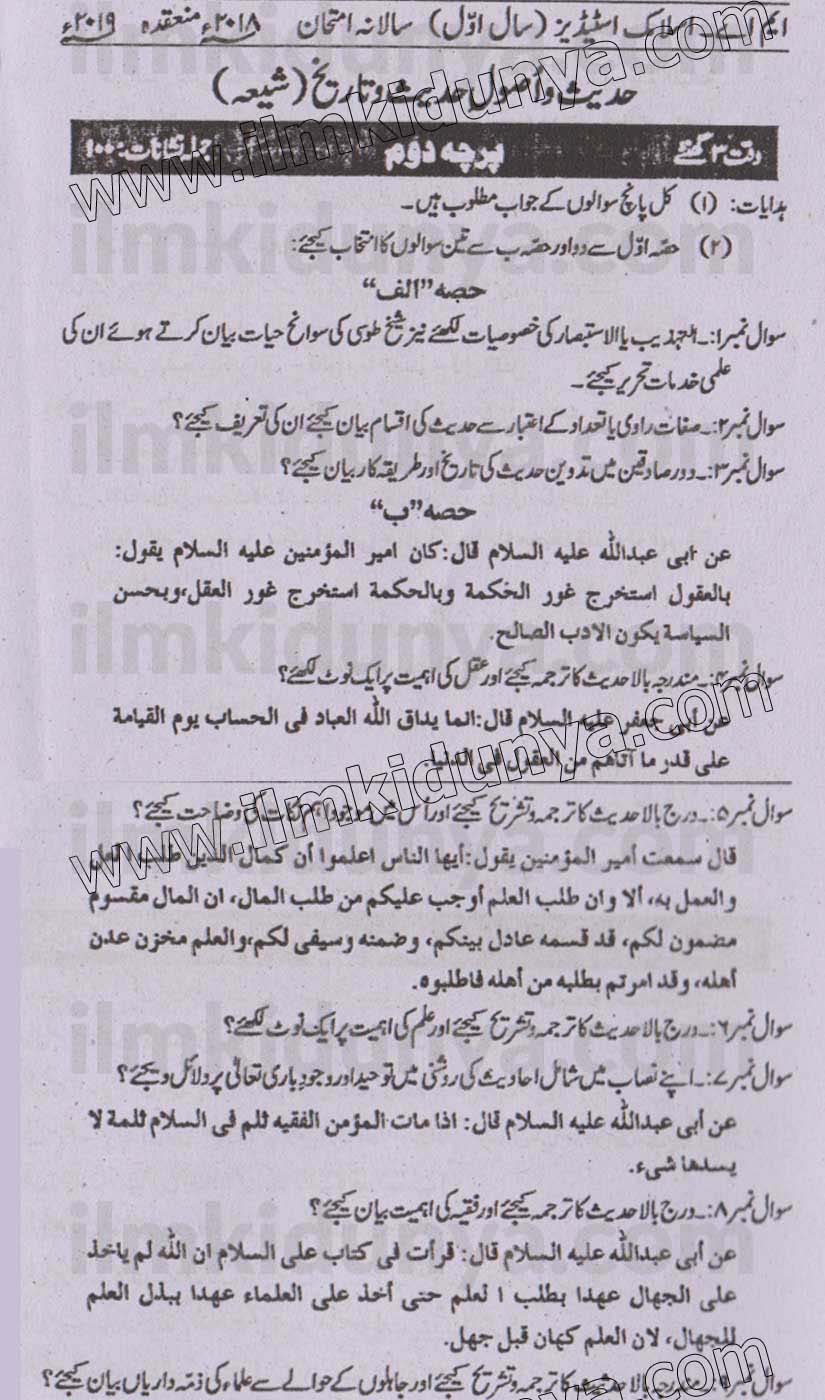 ایم اے۔ اسلامک اسٹڈیز (سال اوّل) سالانہ امتحان ۲۰۱۸ء منعقدہ ۲۰۱۹ء
حدیث و اصول حدیث و تاریخ (شیعہ)
وقت ۳ گھنٹے پرچہ دوم جملہ نشانات: ۱۰۰
ہدایات: (۱) کل پانچ سوالوں کے جواب مطلوب ہیں۔
(۲) حصہ اوّل سے دو اور حصہ ب سے تین سوالوں کا انتخاب کیجئے:
حصہ "الف"
سوال نمبر۱:۔ التہذیب یا الاستبصار کی خصوصیات لکھئے نیز شیخ طوسی کی سوانح حیات بیان کرتے ہوئے ان کی
علمی خدمات تحریر کیجئے۔
سوال نمبر۲:۔ صفات راوی یا تعداد کے اعتبار سے حدیث کی اقسام بیان کیجئے ان کی تعریف کیجئے؟
سوال نمبر۳:۔ دور صادقین میں تدوین حدیث کی تاریخ اور طریقہ کار بیان کیجئے؟
حصہ "ب"
عن ابی عبداللہ علیہ السلام قال: کان امیر المؤمنین علیہ السلام یقول:
بالعقول استخرج غور الحکمة وبالحکمة استخرج غور العقل، وبحسن
السیاسة یکون الادب الصالح.
سوال نمبر۴:۔ مندرجہ بالا حدیث کا ترجمہ کیجئے اور عقل کی اہمیت پر ایک نوٹ لکھئے؟
عن أبی جعفر علیہ السلام قال: انما یداق اللہ العباد فی الحساب یوم القیامة
علی قدر ما آتاھم من العقول فی الدنیا.
سوال نمبر۵:۔ درج بالا حدیث کا ترجمہ و تشریح کیجئے اور اس میں موجود اہم نکات کی وضاحت کیجئے؟
قال سمعت أمیر المؤمنین یقول: أیھا الناس اعلموا أن کمال الدین طلب العل
والعمل بہ، ألا وان طلب العلم أوجب علیکم من طلب المال، ان المال مقسوم
مضمون لکم، قد قسمہ عادل بینکم، وضمنہ وسیفی لکم، والعلم مخزن عدن
أھلہ، وقد امرتم بطلبہ من أھلہ فاطلبوہ.
سوال نمبر۶:۔ درج بالا حدیث کا ترجمہ و تشریح کیجئے اور علم کی اہمیت پر ایک نوٹ لکھئے؟
سوال نمبر۷:۔ اپنے نصاب میں شامل احادیث کی روشنی میں توحید اور وجود باری تعالیٰ پر دلائل دیجئے؟
عن أبی عبداللہ علیہ السلام قال: اذا مات المؤمن الفقیہ ثلم فی السلام ثلمة لا
یسدھا شیء.
سوال نمبر۸:۔ درج بالا حدیث کا ترجمہ کیجئے اور فقیہ کی اہمیت بیان کیجئے؟
عن أبی عبداللہ علیہ السلام قال: قرأت فی کتاب علی السلام ان اللہ لم یاخذ
علی الجھال عھدا بطلب ا لعلم حتی أخذ علی العلماء عھدا ببذل العلم
للجھال، لان العلم کھان قبل جھل.
سوال نمبر۹:۔ مندرجہ بالا حدیث کا ترجمہ و تشریح کیجئے اور جاہلوں کے حوالے سے علماء کی ذمہ داریاں بیان کیجئے؟
www.ilmkidunya.com
www.ilmkidunya.com
ilmkidunya.com
ilmkidunya.com
ilmkidunya.com
ilmkidunya.com
ilmkidunya.com
ilmkidunya.com